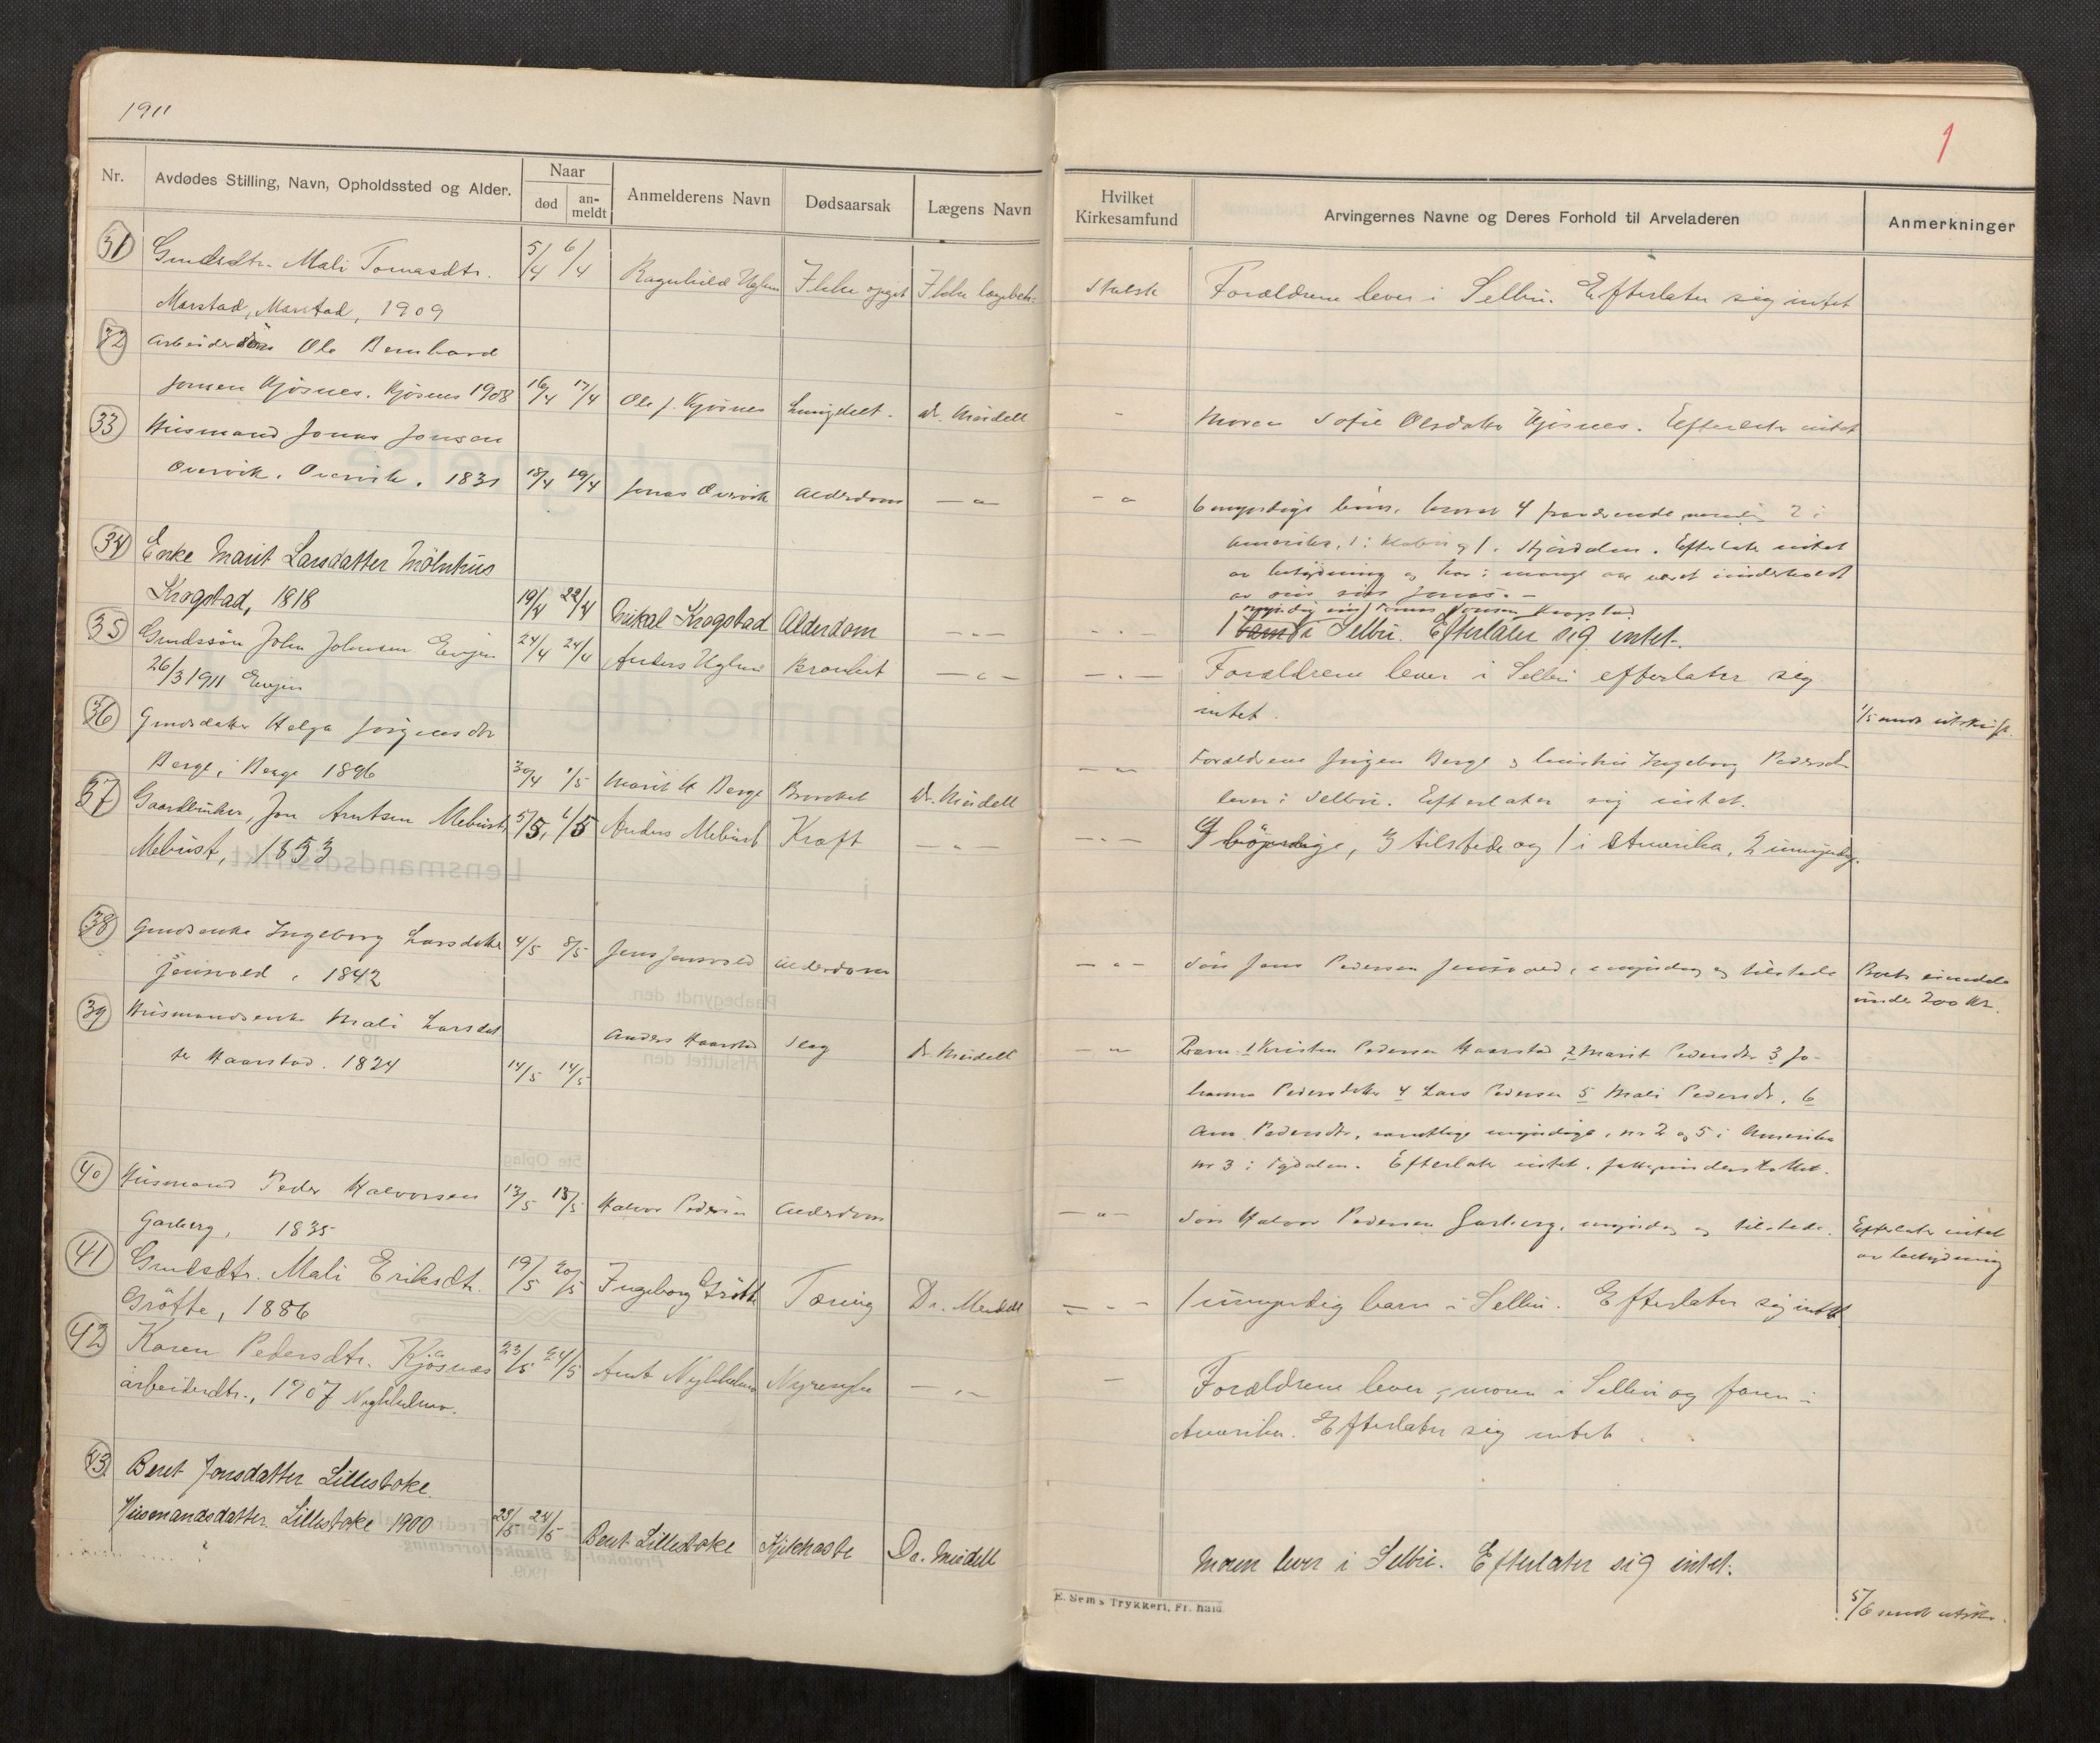 1911
1
Nr. Avdødes Stilling, Navn, Opholdssted og Alder. Naar død an-meldt Anmelderens Navn Dødsaarsak Lægens Navn Hvilket Kirkesamfund Arvingernes Navne og Deres Forhold til Arveladeren Anmerkninger
31 Grudsdtr. Mali Tomasdtr. 5/4 6/4 Ragnhild Uglem Ikke opgit Ikke lægebeh. Statsk Forældrene lever i Selbu. Efterlater sig intet
Marstad, Marstad, 1909
32 Arbeidersøn Ole Bernhard
Jonsen Kjøsnes. Kjøsnes 1908 16/4 17/4 Ole J. Kjøsnes dr. Mindell Moren Sofie Olsdatter Kjøsnes. Efterlater intet
33 Husmand Jonas Jonsen
Overvik. Overvik. 1831 18/4 19/4 Jonas Overvik Alderdom 6 myndige børn, hvorav 4 fraværende, nemlig 2 i
Amerika, 1 i og 1 i Stjørdalen. Efterlater intet
av betydning og har i mange aar været underholdt
av sin søn Jonas. -
34 Enke Marit Larsdatter Mölnhus
Krogstad, 1818 19/4 22/4 Mikal Krogstad Alderdom — " — — " — myndig søn Jonsen Krogstad
1 barn i Selbu. Efterlater sig intet.
35 Grudssøn John Johnsen Evjen 24/4 24/4 Anders Uglem Bronkit — " — — " — Forældrene lever i Selbu efterlater sig
26/3 1911 Evjen intet.
1/5 sendt utskrift.
36 Grudsdatter Helga Jørgensdtr
Berge, Berge 1896 30/4 1/5 Marit H Berge dr. Mindell — " — Forældrene Jørgen Berge og hustru Ingeborg Pedersdtr
lever i Selbu. Efterlater sig intet.
37 Gaardbruker, Jon Arntsen Mebust, 5/5, 6/5 Anders Mebust Kræft — " — — " — 3 tilstede og 1 i Amerika, 2 umyndige.
Mebust, 1853
38 Grudsenke Ingeborg Larsdatter 4/5 8/5 Jens Jensvold Alderdom — " — Søn Jens Pedersen Jensvold, myndig og tilstede
Jensvold, 1842 under 200 Kr.
39 Husmandsenke Mali Larsdat
ter Haarstad. 1824 14/5 14/5 Anders Haarstad Slag dr Mindell — " — Barn: 1 Kristen Pedersen Haarstad 2 Marit Pedersdtr 3 Jo-
hanna Pedersdatter 4 Lars Pedersen 5 Mali Pedersdtr. 6
Ane Pedersdtr, samtlige myndige, nr 2 og 5 i Amerika
nr 3 i Tydalen. Efterlater intet. fattigunderstøttet.
40 Husmand Peder Halvorsen 13/5 15/5 Halvor Pedersen Alderdom — " — Søn Halvor Pedersen Garberg, myndig og tilstede. Efterlater intet
Garberg, 1835 av betydning
41 Grudsdtr. Mali Eriksdtr. 19/5 20/5 Ingeborg Grötte Tæring Dr. Mindell — " — 1 umyndig barn i Selbu. Efterlater sig intet
Grötte, 1886
42 Karen Pedersdtr. Kjösnes 23/5 24/5 Arnt Nykkelmo Nyresyke — " — — Forældrene lever, moren i Selbu og faren i
arbeiderdtr., 1907 Nykkelmo. Amerika. Efterlater sig intet.
43 Beret Jonsdatter Lillestoke.
Husmandsdatter. Lillestoke 1900 23/5 24/5 Beret Lillestoke Kikhoste Dr. Mindell Moren lever i Selbu. Efterlater sig intet.
5/6 sendt utskr.
E. Sem's Trykkeri, Fr.hald